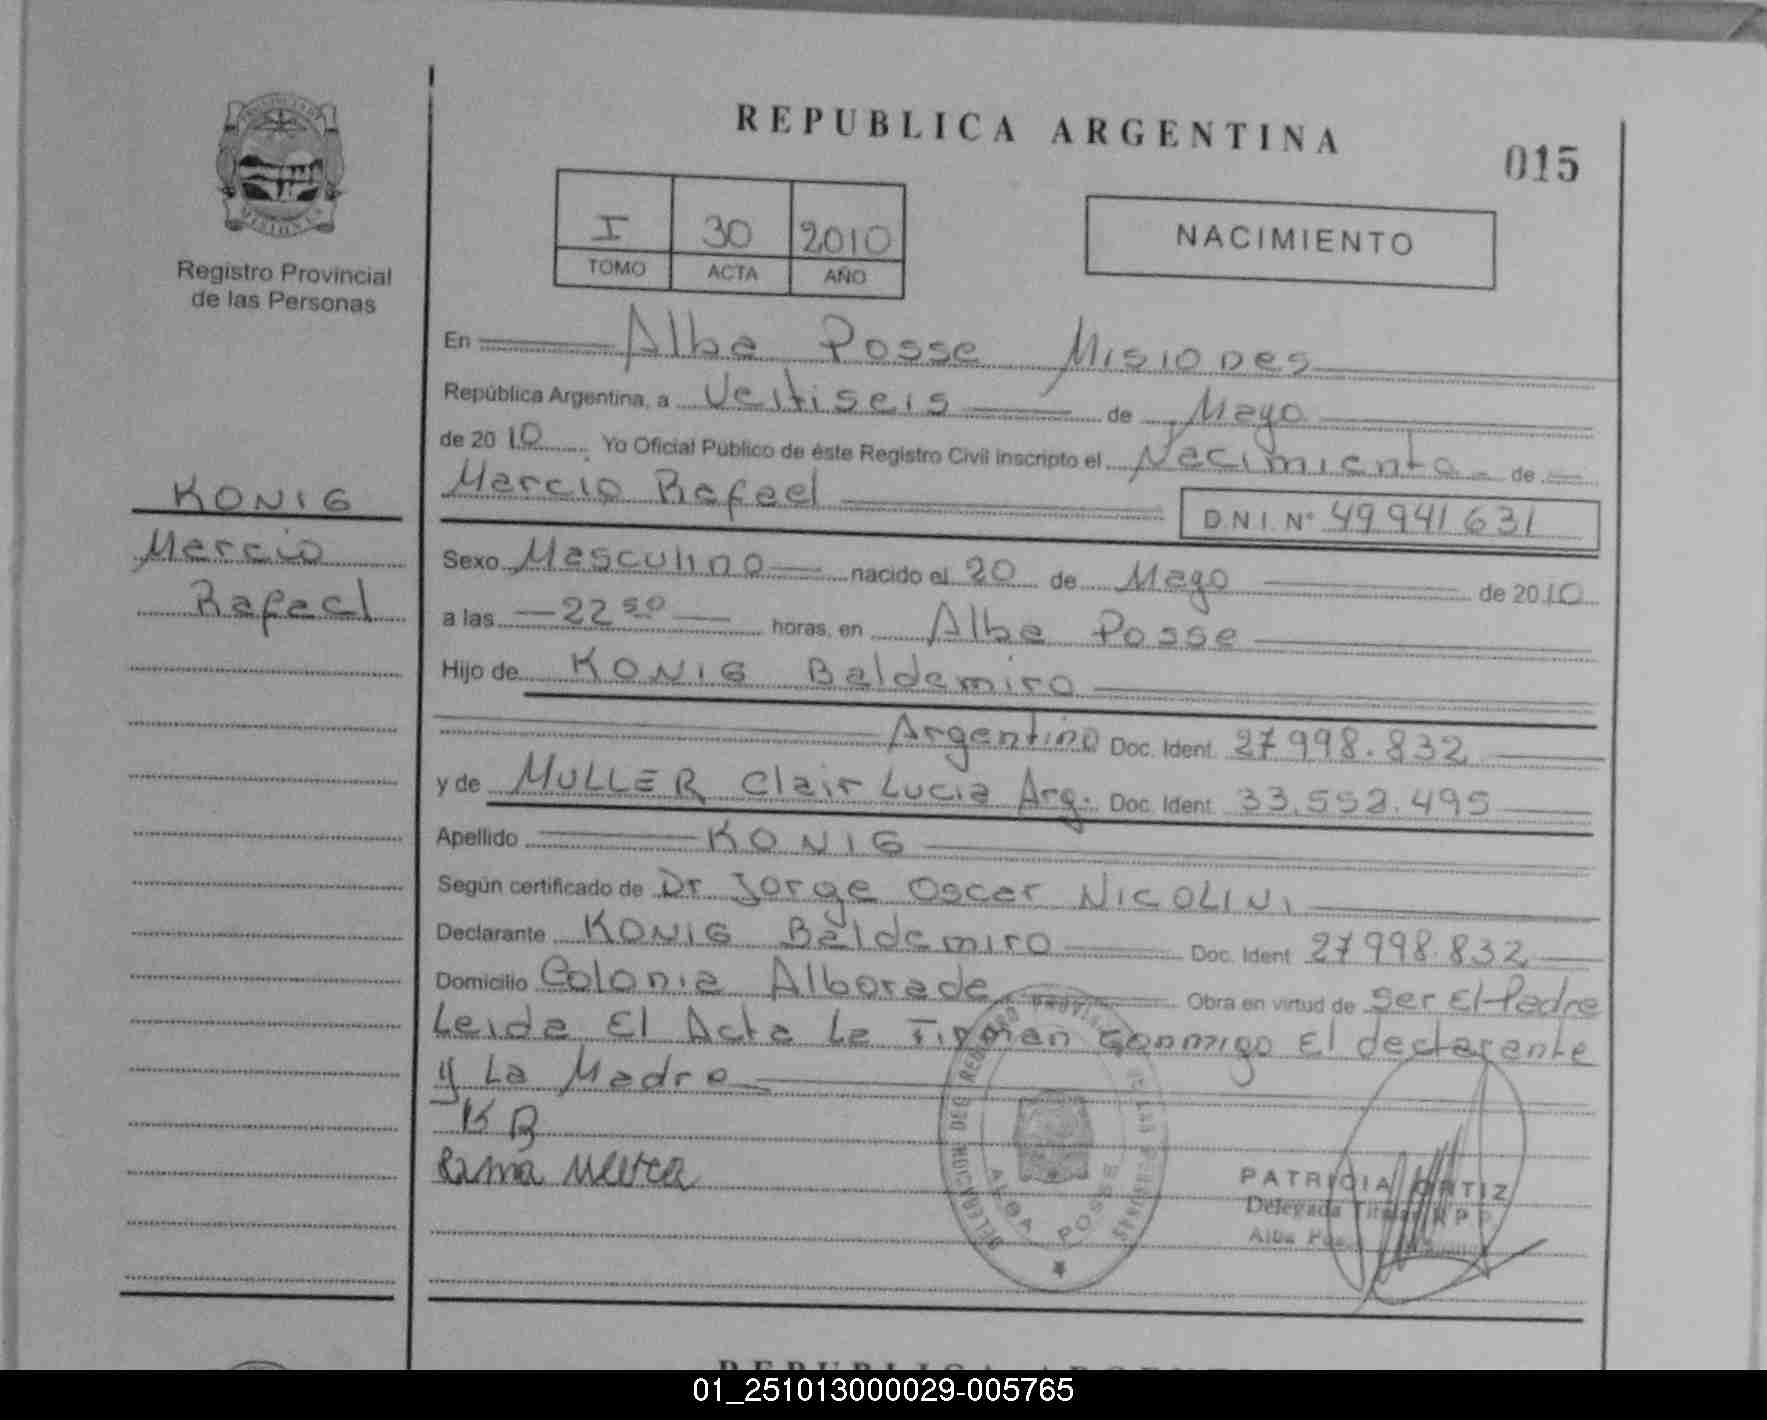 REPUBLICA ARGENTINA
015
I 30 2010
TOMO ACTA AÑO
NACIMIENTO
Registro Provincial
de las Personas
KONIG
Marcio
Rafael
En Alba Posse Misiones
República Argentina, a Veitiseis de Mayo
de 2010 Yo Oficial Público de éste Registro Civil inscripto el Nacimiento de
Marcio Rafael D.N.I. N° 49941631
Sexo Masculino nacido el 20 de Mayo de 2010
a las 22 50 horas, en Alba Posse
Hijo de KONIG Baldemiro
Argentino Doc. Ident. 27998.832
y de MULLER Clair Lucia Arg. Doc. Ident. 33.552.495
Apellido KONIG
Según certificado de Dr Jorge Oscar NICOLINI
Declarante KONIG Baldemiro Doc. Ident 27998.832
Domicilio Colonia Alborada Obra en virtud de Ser El Padre
Leida El Acta La Firman Conmigo El declarante
y La Madre
KB
DELEGACION DEL REGISTRO PROVINCIAL DE LAS PERSONAS
ALBA POSSE
PATRICIA ORTIZ
Delegada Titular R P P
Alba
REPUBLICA ARGENTINA
01_251013000029-005765